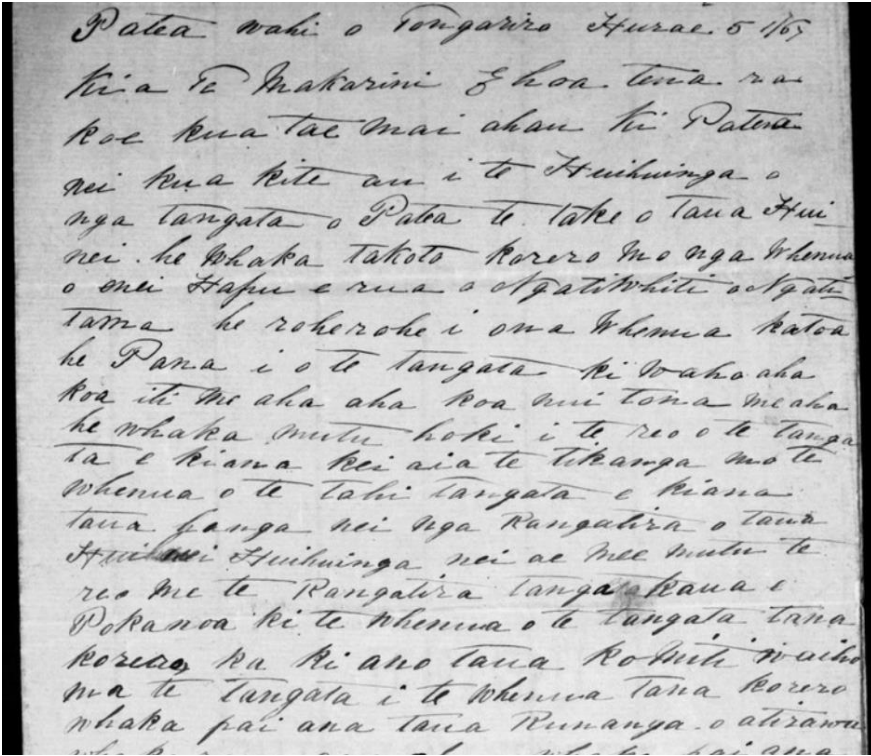 Patea wahi o Tongariro Hurae 5 1/67
Kia Te Makarini E hoa tena ra
koe kua tae mai ahau ki Patea
nei kua kite au i te Huihuinga o
nga tangata o Patea te take o taua Hui
nei he whaka takoto korero mo nga Whenua
o enei Hapu e rua o NgatiWhiti o Ngati
tama he roherohe i ona Whenua katoa
he Pana i o te tangata ki waho aha
koa iti me aha aha koa nui tona meaha
he whaka mutu hoki i te reo o te tanga
ta e kiana kei aia te tikanga mo te
whenua o te tahi tangata e kiana
taua nei nga Rangatira o taua
Huihuinga nei ae mee mutu te
reo me te Rangatira tanga Kaua e
Pokanoa ki te whenua o te tangata tana
korero, ka ki ano taua Komiti waiho
ma te tangata i te whenua tana korero
whaka pai ana taua Runanga o
whaka pai ana